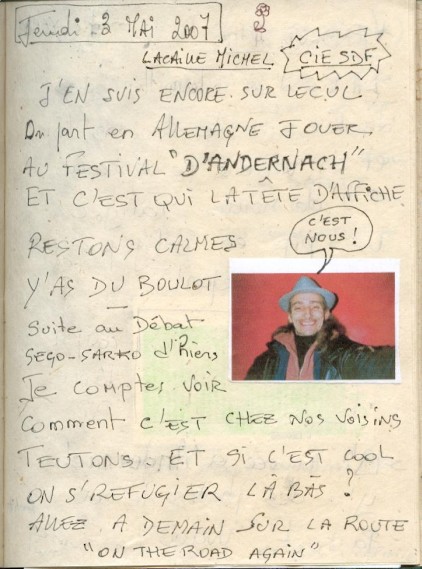 Jeudi 3 MAI 2007
LACAILLE MICHEL
CIE SDF
J'EN SUIS ENCORE SUR LECUL
On part en ALLEMAGNE JOUER
AU FESTIVAL "D'ANDERNACH"
ET C'EST QUI LA TÊTE D'AFFICHE
C'EST
NOUS !
RESTONS CALMES
Y'AS DU BOULOT
Suite au Débat
SEGO-SARKO d'hiers
Je comptes voir
Comment C'EST CHEZ NOS VOISINS
TEUTONS. ET SI C'EST COOL
ON S'REFUGIER LÀ BAS ?
ALLEZ A DEMAIN SUR LA ROUTE
"ON THE ROAD AGAIN"